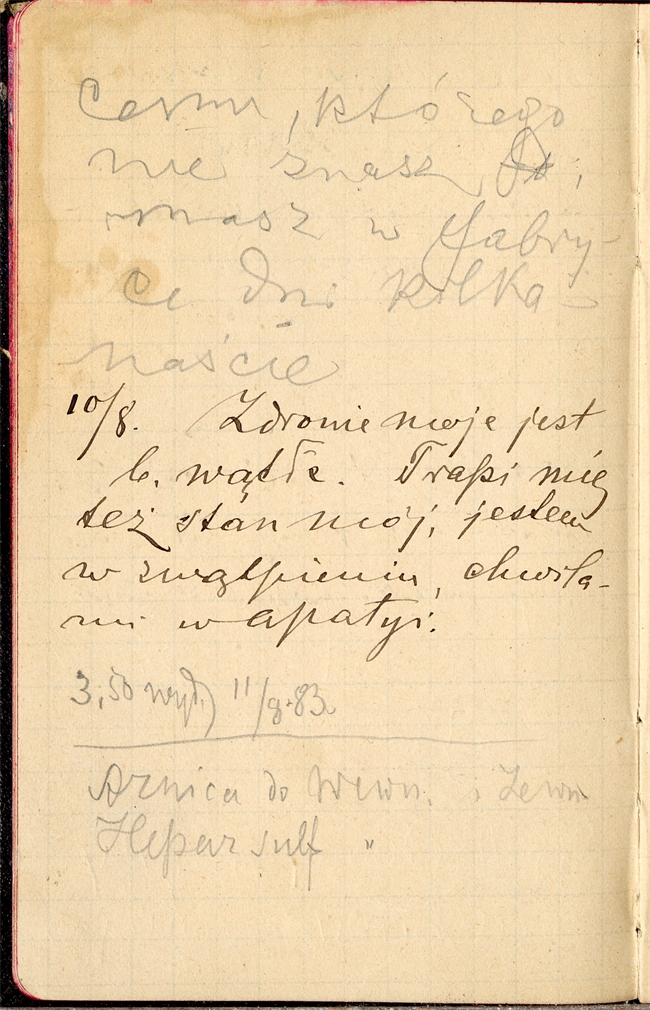 cesun, którego
nie znasz
masz w fabry-
ce dni kilka-
naście
10/8. Zdrowie moje jest
b. wątłe. Trapi mię
też stan mój, jestem
w zwątpieniu, chwila-
mi w apatyi.
3,50 wyd. 11/8.83.
Arnica do Wewn. i Zewn
Hepar sulf "